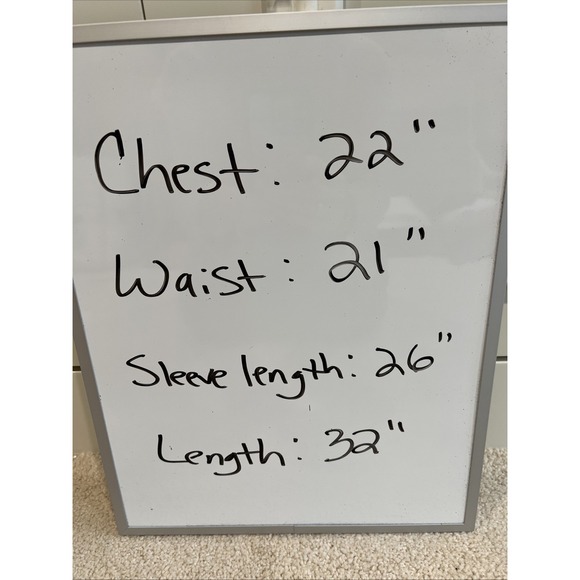 Chest: 22"
Waist: 21"
Sleeve length: 26"
Length: 32"